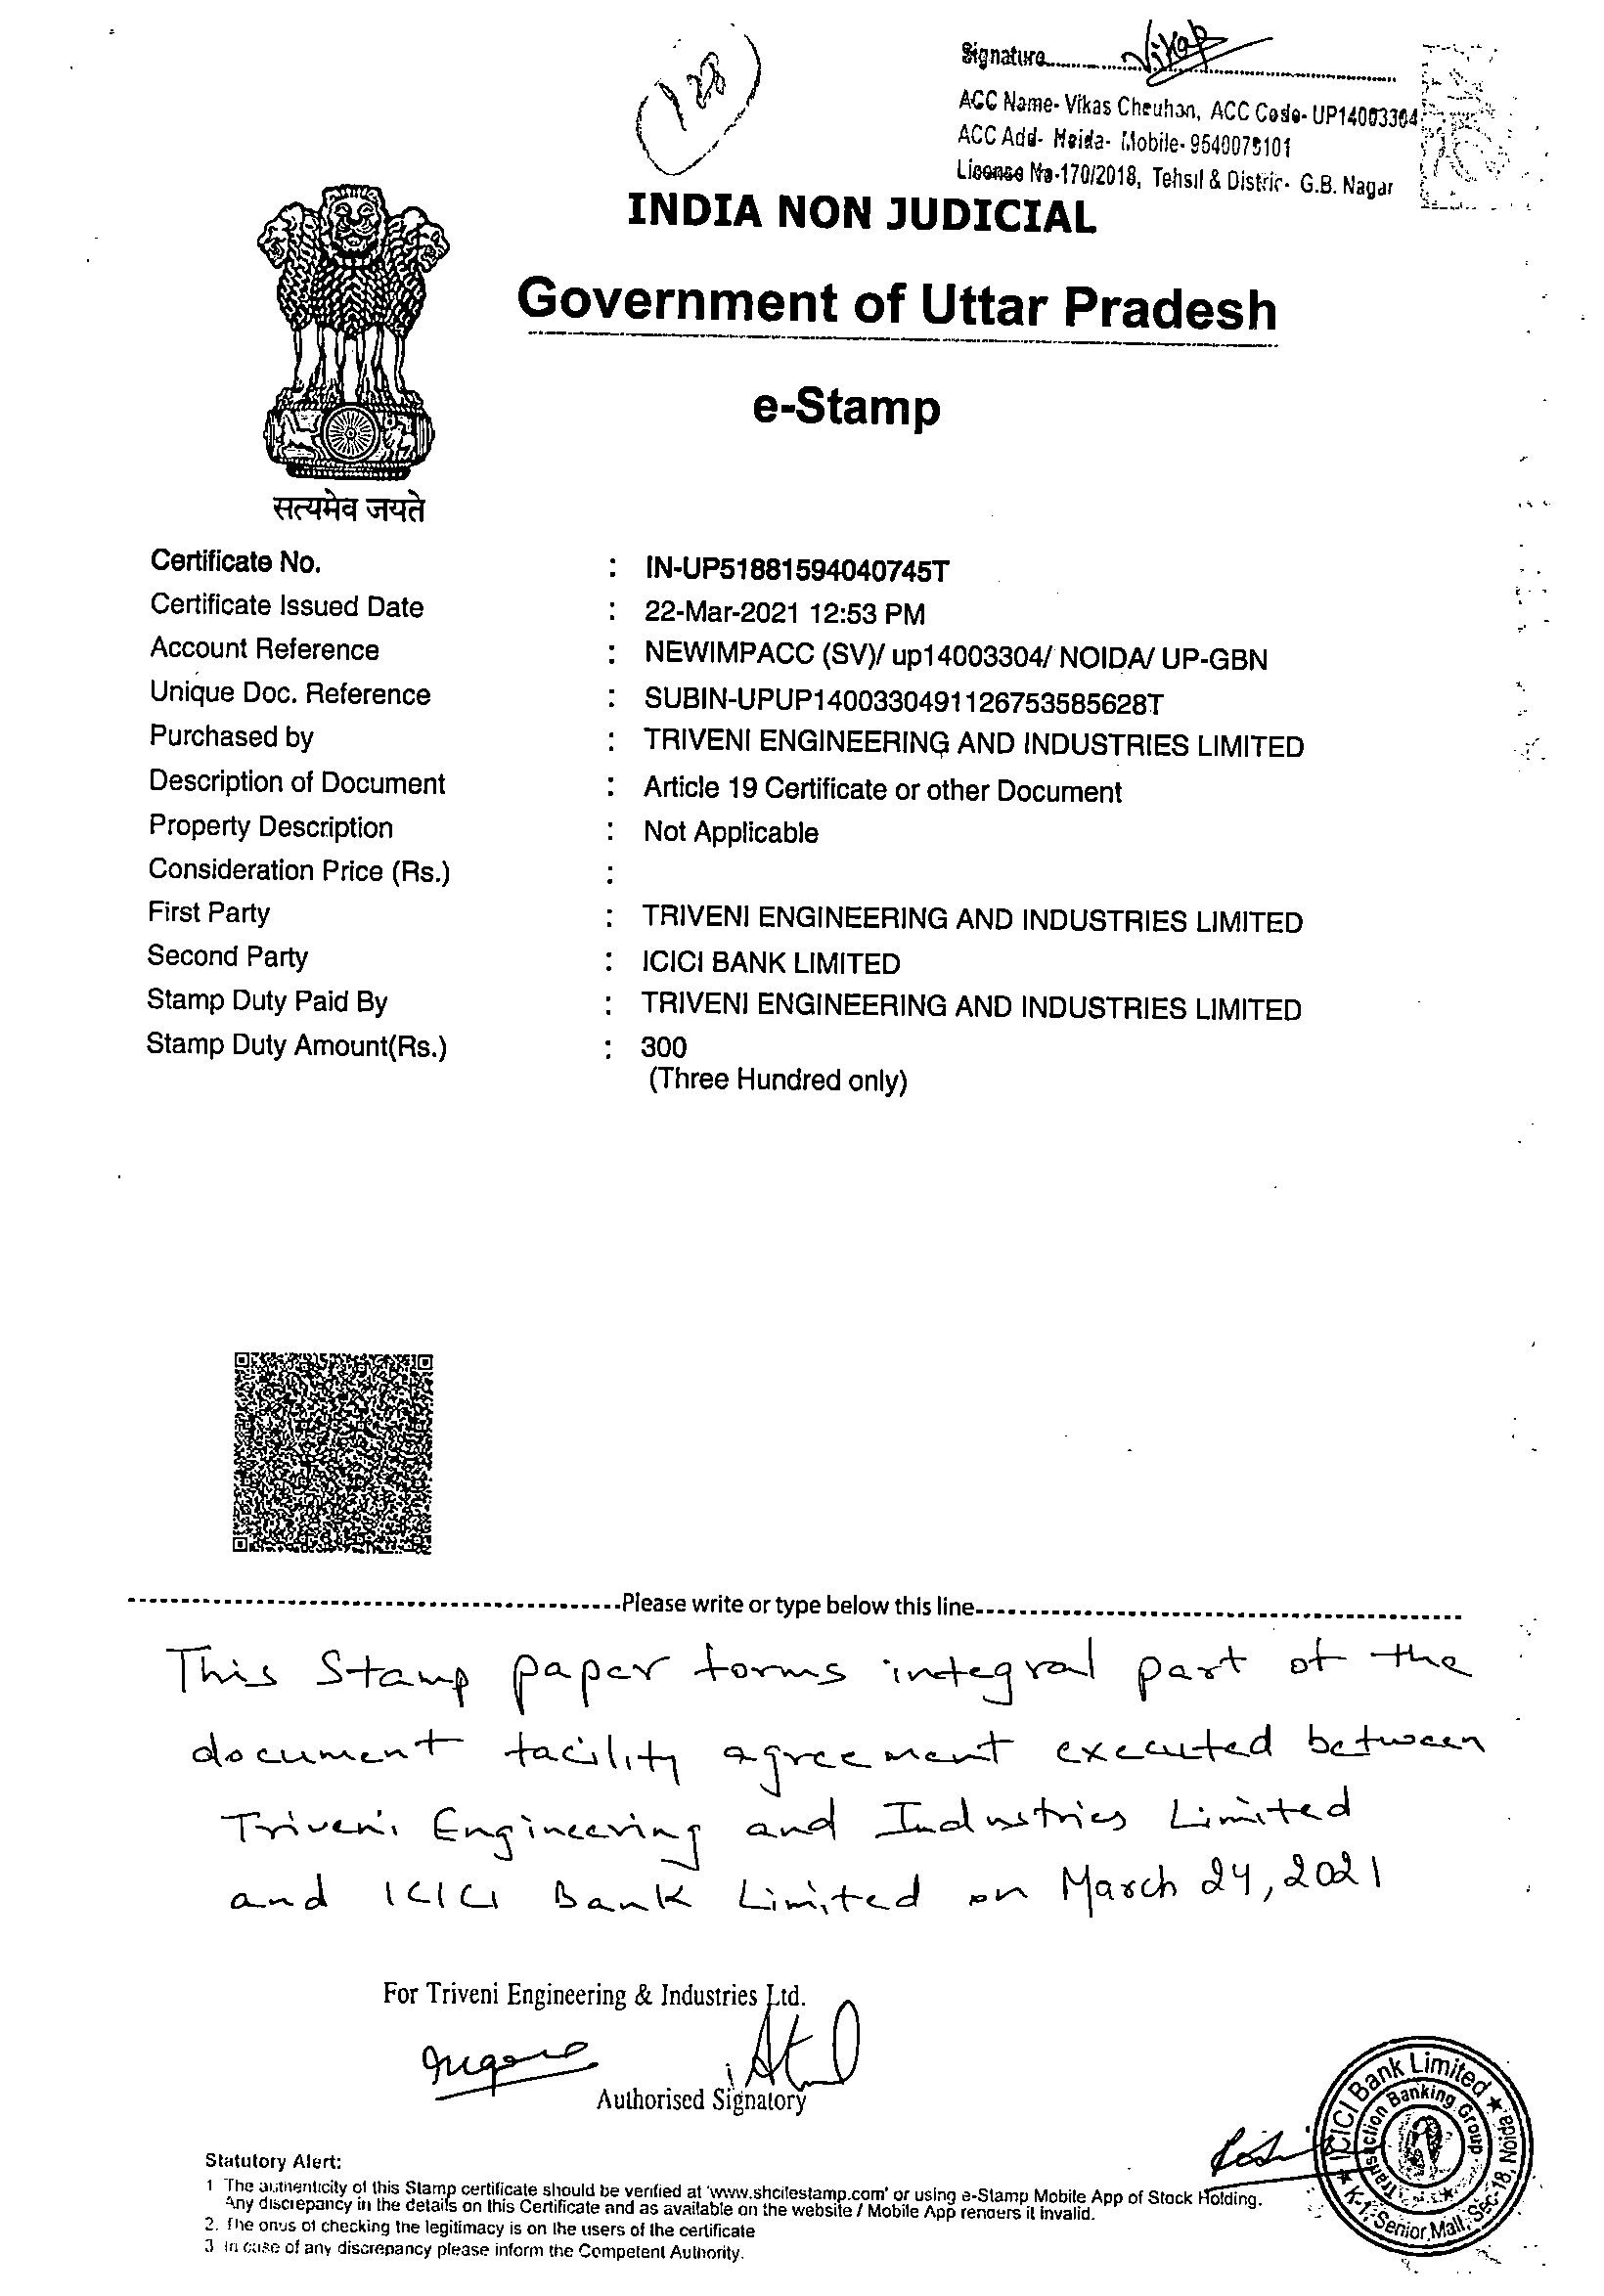 (128)
Signature
Vikas
ACC Name- Vikas Chauhan, ACC Code- UP14003304
ACC Add- Noida- Mobile- 9540075101
License No-170/2018, Tehsil & Distric- G.B. Nagar
INDIA NON JUDICIAL
Government of Uttar Pradesh
e-Stamp
सत्यमेव जयते
Certificate No. : IN-UP51881594040745T
Certificate Issued Date : 22-Mar-2021 12:53 PM
Account Reference : NEWIMPACC (SV)/ up14003304/ NOIDA/ UP-GBN
Unique Doc. Reference : SUBIN-UPUP1400330491126753585628T
Purchased by : TRIVENI ENGINEERING AND INDUSTRIES LIMITED
Description of Document : Article 19 Certificate or other Document
Property Description : Not Applicable
Consideration Price (Rs.) :
First Party : TRIVENI ENGINEERING AND INDUSTRIES LIMITED
Second Party : ICICI BANK LIMITED
Stamp Duty Paid By : TRIVENI ENGINEERING AND INDUSTRIES LIMITED
Stamp Duty Amount(Rs.) : 300
(Three Hundred only)
Please write or type below this line
This Stamp paper forms integral part of the
document facility agreement executed between
Triveni Engineering and Industries Limited
and ICICI Bank Limited on March 24, 2021
For Triveni Engineering & Industries Ltd.
Authorised Signatory
ICICI Bank Limited ★ K-1, Senior Mall, Sec-18, Noida ★
Transaction Banking Group
Statutory Alert:
1 The authenticity of this Stamp certificate should be verified at 'www.shcilestamp.com' or using e-Stamp Mobile App of Stock Holding.
Any discrepancy in the details on this Certificate and as available on the website / Mobile App renders it invalid.
2. The onus of checking the legitimacy is on the users of the certificate
3 In case of any discrepancy please inform the Competent Authority.